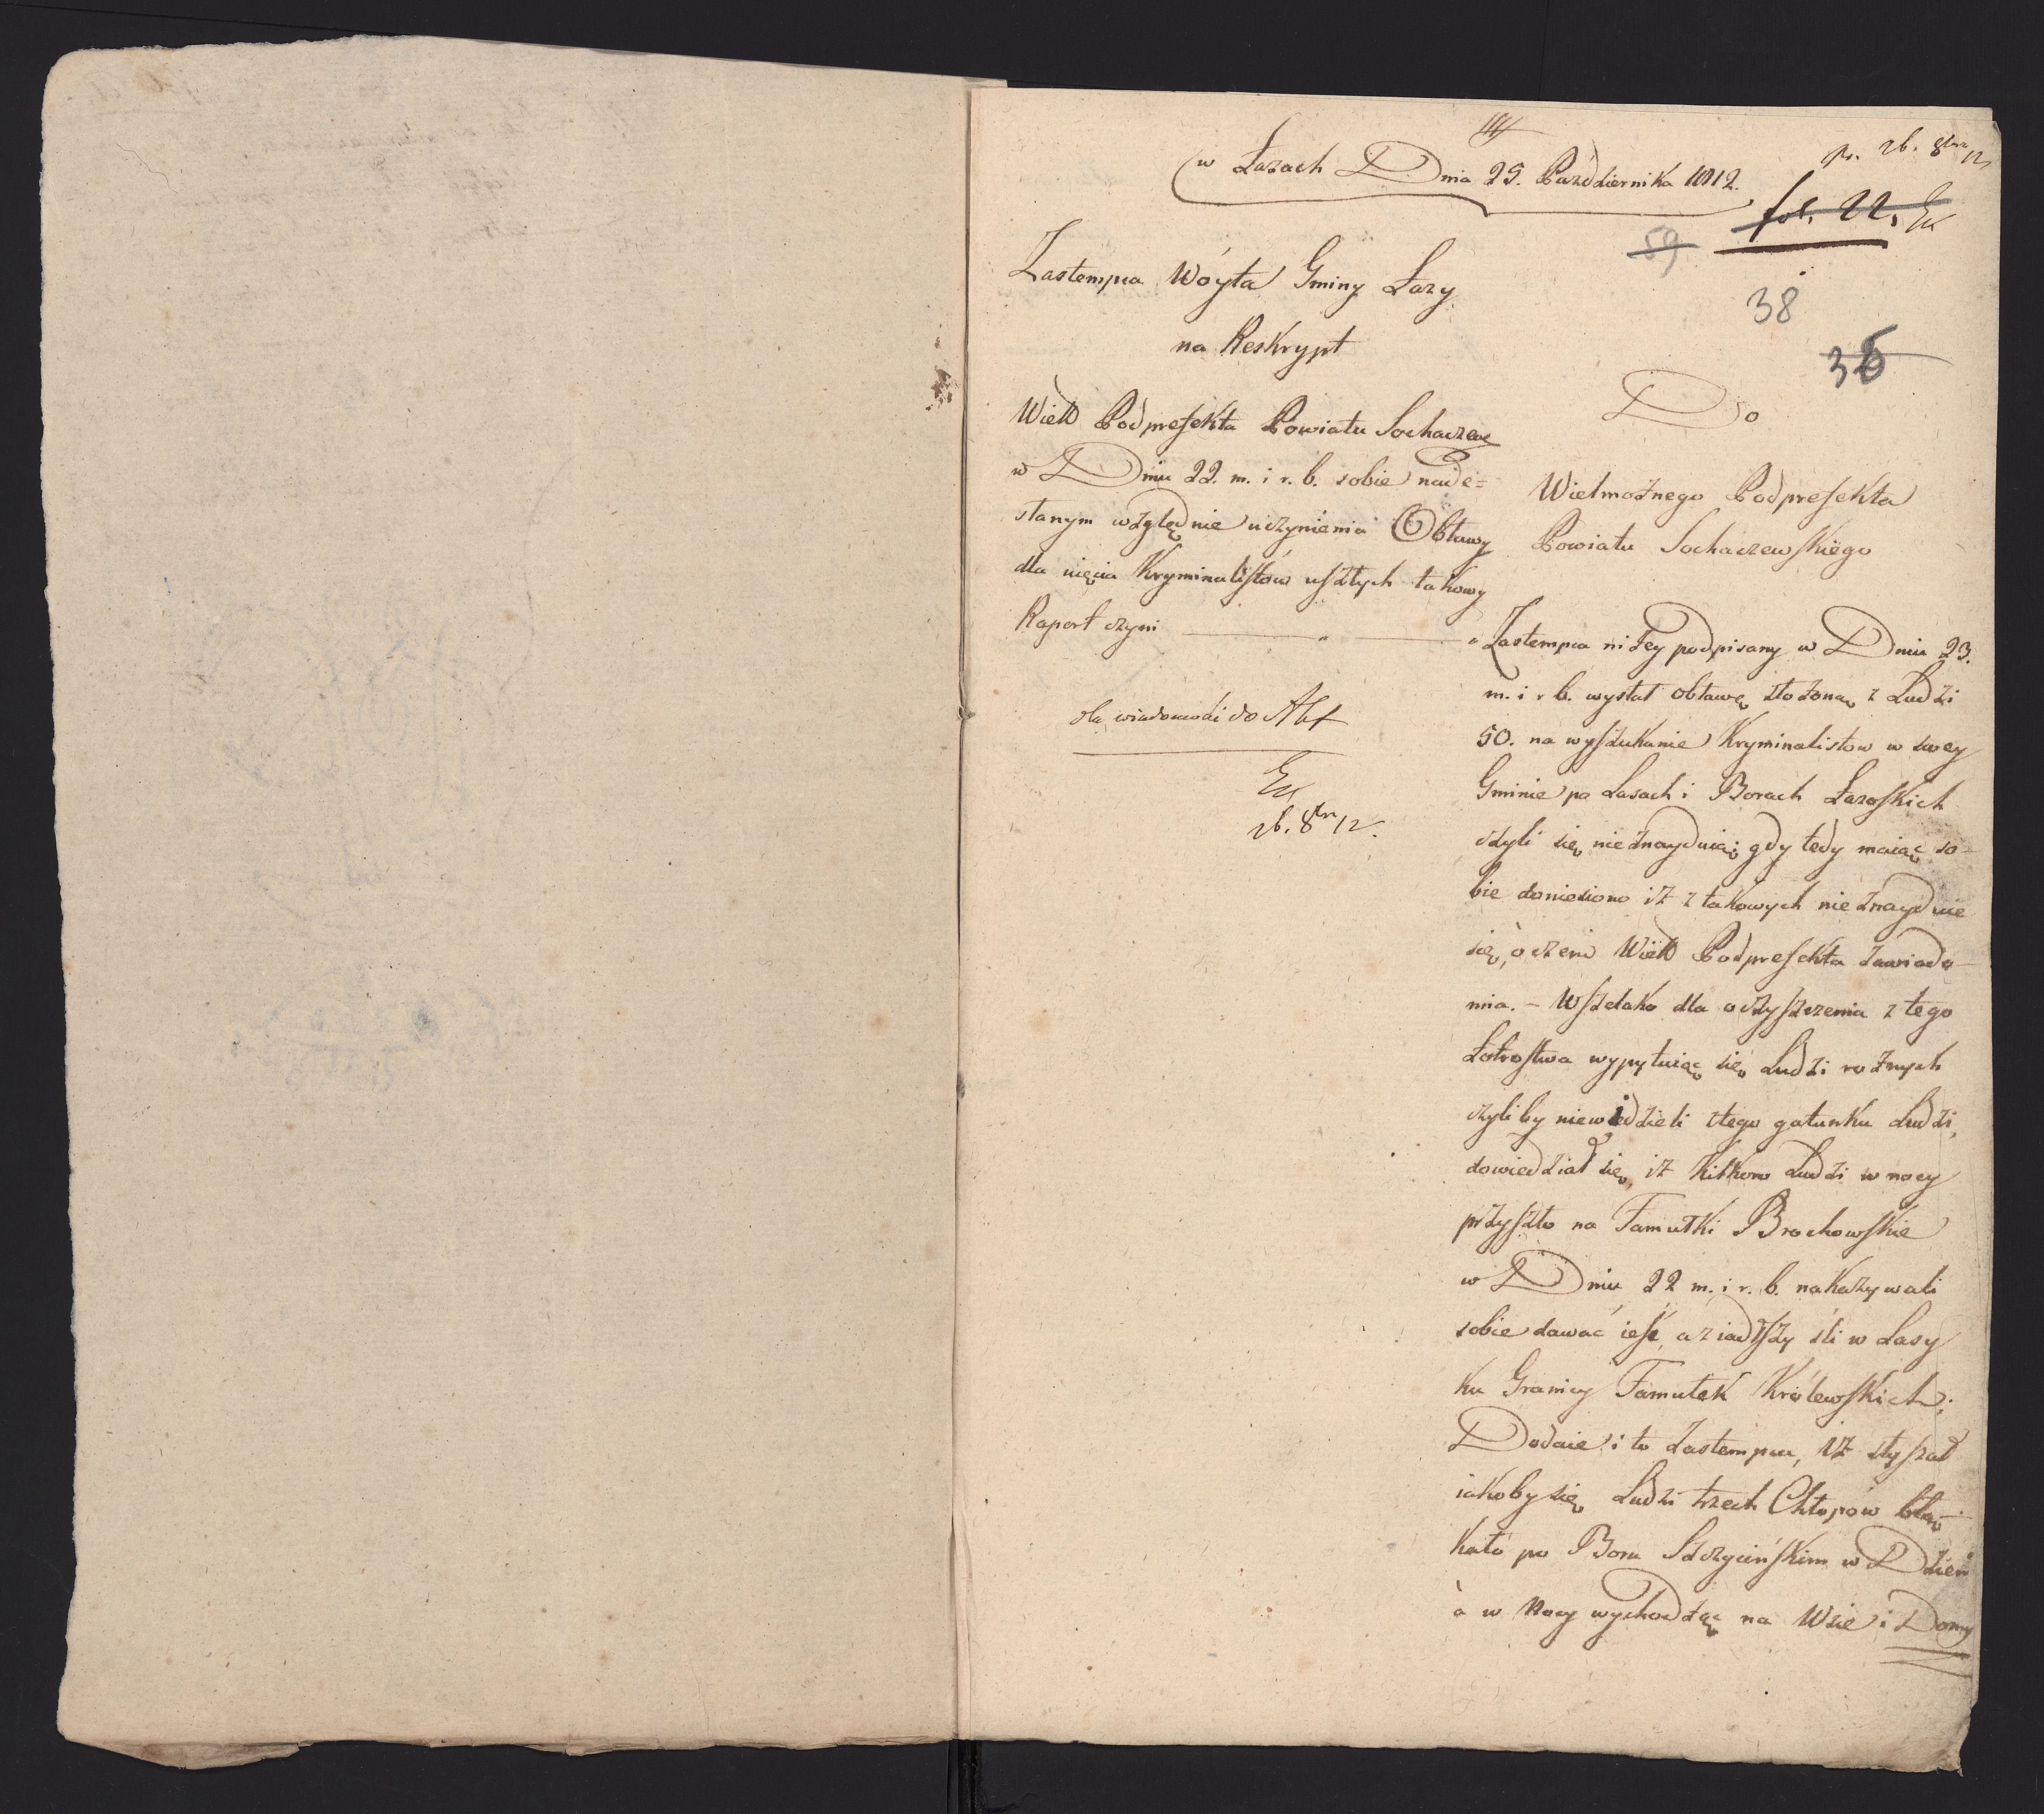 w Łazach Dnia 25. Października 1812.
pr. 26. 8bra 12
fol. 22.
59
38
36
Zastempca Wóyta Gminy Łazy
na Reskrypt
Wielo Podprefekta Powiatu Sochaczew
w Dniu 22. m. i r. b. sobie nade=
słanym względnie uczynienia Obławy
dla ujęcia Kryminalistów uszłych takowy
Raport czyni
dla wiadomości do Akt
26. 8bra 12.
Do
Wielmożnego Podprefekta
Powiatu Sochaczewskiego
Zastempca niżey podpisany w Dniu 23.
m. i r b. wysłał obławę złożoną z Ludzi
50. na wyszukanie Kryminalistow w swey
Gminie po Lasach i Borach Łazoskich
czyli się nieznayduią; gdy tedy maiąc so-
bie doniesiono iż z takowych nie znayduie
się, o czem Wielo Podprefekta zawiado-
mia. - Wszelako dla oczyszczenia z tego
Łotrostwa wypytuiąc się Ludzi rożnych
czyli by niewidzieli ztego gatunku Ludzi,
dowiedział się, iż kilkoro Ludzi w nocy
przyszło na Famułki Brochowskie
w Dniu 22 m. i r. b. nakazywali
sobie dawać ieść, a ziadłszy śli w Lasy
ku Granicy Famułek Królewskich;
Dodaie i to Zastempca, iż słyszał
iakoby się Ludzi trzech Chłopów błą-
kało po Boru Szczycińskim w Dzień
à w Nocy wychodzą na Wsie i Domy